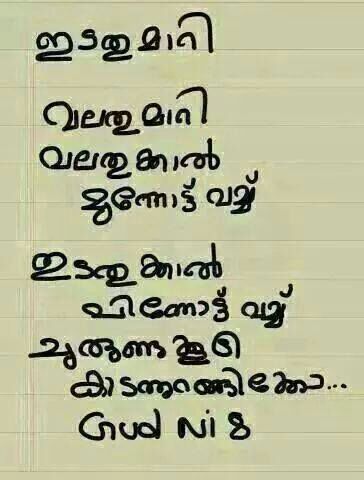 ഇടതു മാറി
വലതു മാറി
വലതു ക്കാൽ
മുന്നോട്ട് വച്ച്
ഇടതു ക്കാൽ
പിന്നോട്ട് വച്ച്
ചുരുണ്ടു കൂടി
കിടന്നുറങ്ങിക്കോ...
Gud Ni8